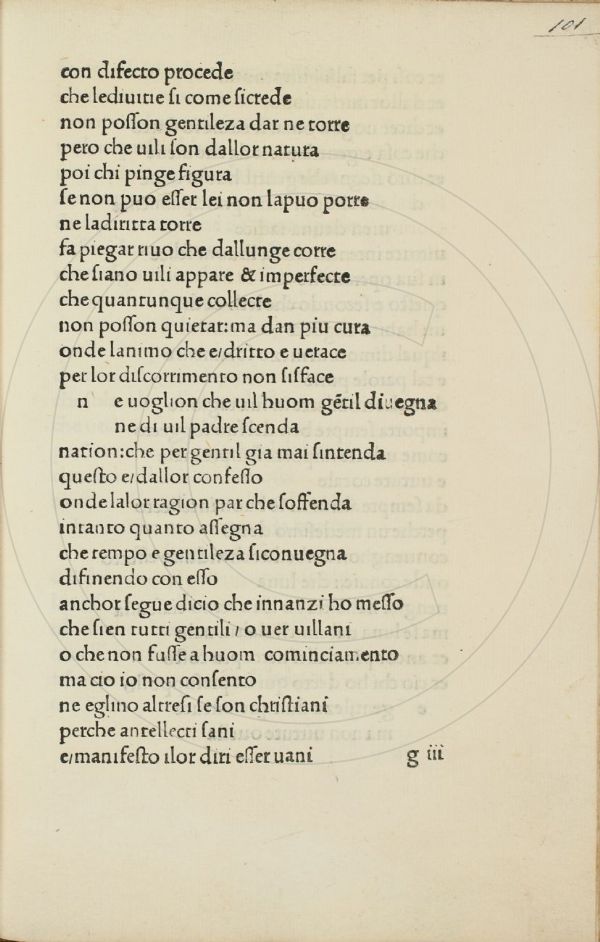 101
con difecto procede
che lediuitie ſi come ſicrede
non poſſon gentileza dar ne torre
pero che uili ſon dallor natura
poi chi pinge figura
ſe non puo eſſer lei non lapuo porre
ne ladiritta torre
fa piegar riuo che dallunge corre
che ſiano uili appare & imperfecte
che quantunque collecte
non poſſon quietar:ma dan piu cura
onde lanimo che e/dritto e uerace
per lor diſcorrimento non ſiſface
n e uoglion che uil huom gẽtil diuegna
ne di uil padre ſcenda
nation:che per gentil gia mai ſintenda
queſto e/dallor confeſſo
onde lalor ragion par che ſoffenda
intanto quanto aſſegna
che tempo e gentileza ſiconuegna
difinendo con eſſo
anchor ſegue dicio che innanzi ho meſſo
che ſien tutti gentili / o uer uillani
o che non fuſſe a huom cominciamento
ma cio io non conſento
ne eglino altreſi ſe ſon chriſtiani
perche antellecti ſani
e/manifeſto ilor diri eſſer uani
g iii